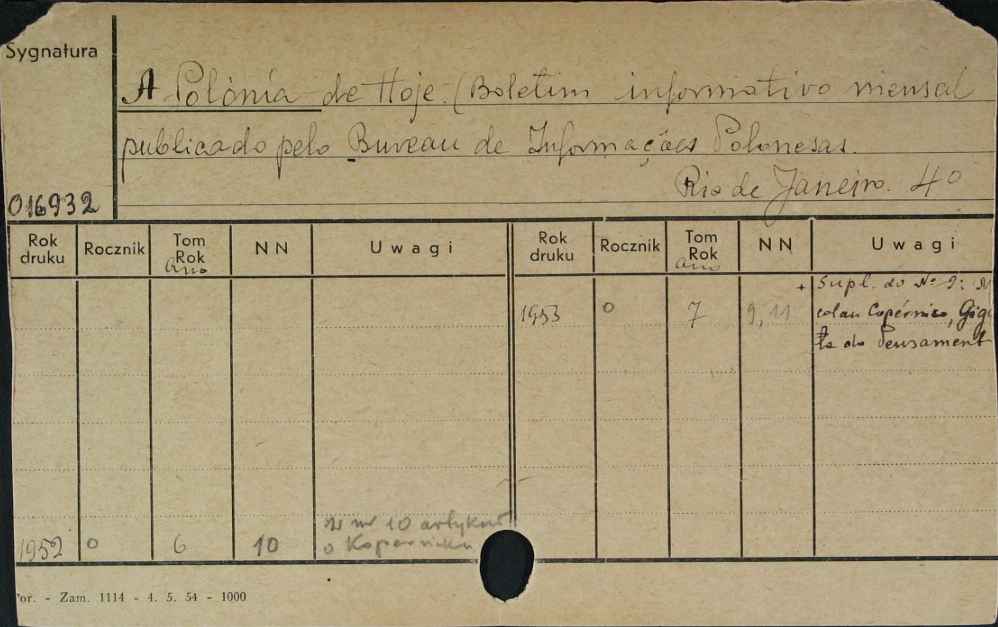 Sygnatura
A Polónia de Hoje. (Boletim informativo mensal
publicado pelo Bureau de Informações Polonesas.
Rio de Janeiro. 4°
016932
Rok druku Rocznik Tom Rok Ano NN Uwagi Rok druku Rocznik Tom Rok Ano NN Uwagi
+ Supl. do No 9: N
1953 0 7 9, 11 colau Copérnico, Gig
te do Pensament
w nr 10 artykuł
1952 0 6 10 o Koperniku
Tor. - Zam. 1114 - 4. 5. 54 - 1000